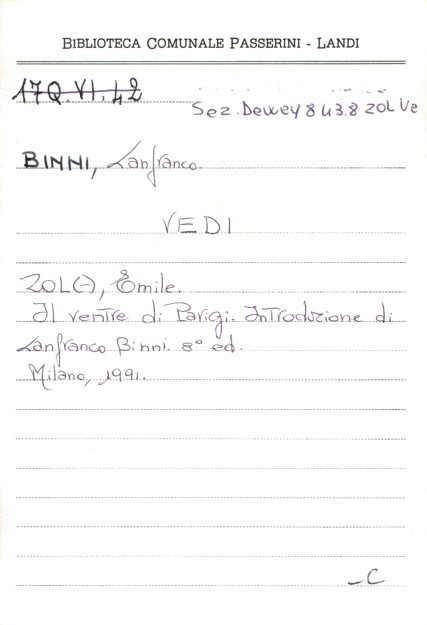 BIBLIOTECA COMUNALE PASSERINI - LANDI
17Q.VI.42
Sez. Dewey 843.8 ZOL Ve
BINNI, Lanfranco.
VEDI
ZOL(-), Émile.
Il ventre di Parigi. Introduzione di
Lanfranco Binni. 8° ed.
Milano, 1991.
_C